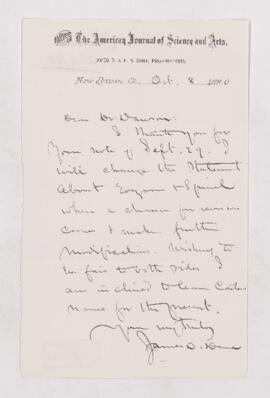 The American Journal of Science and Arts.
JAMES D. & E. S. DANA, PROPRIETORS.
New Haven, Ct. Oct. 8 1880
Dear Dr Dawson:
I thank you for
your note of Sept. 29. I
will change the statement
about Eozoon &
when a chance for revision
comes & make further
modification. Wishing to
be fair to both sides I
am inclined to leave
name for the present.
Yours very truly
James D. Dana